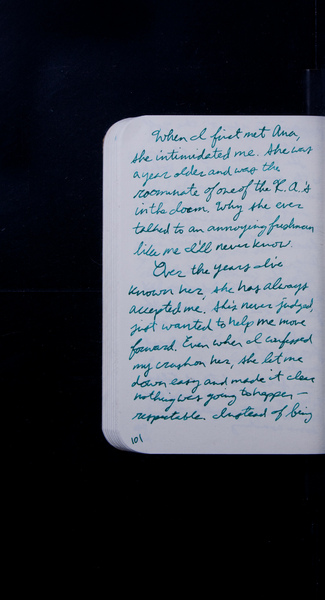 When I first met Ana,
she intimidated me. She was
a year older and was the
roommate of one of the R.A.'s
in the dorm. Why she ever
talked to an annoying freshman
like me I'll never know.
Over the years I've
known her, she has always
accepted me. She's never judged,
just wanted to help me move
forward. Even when I confessed
my crush on her, she let me
down easy and made it clear
nothing was going to happen –
respectable. Instead of being
101